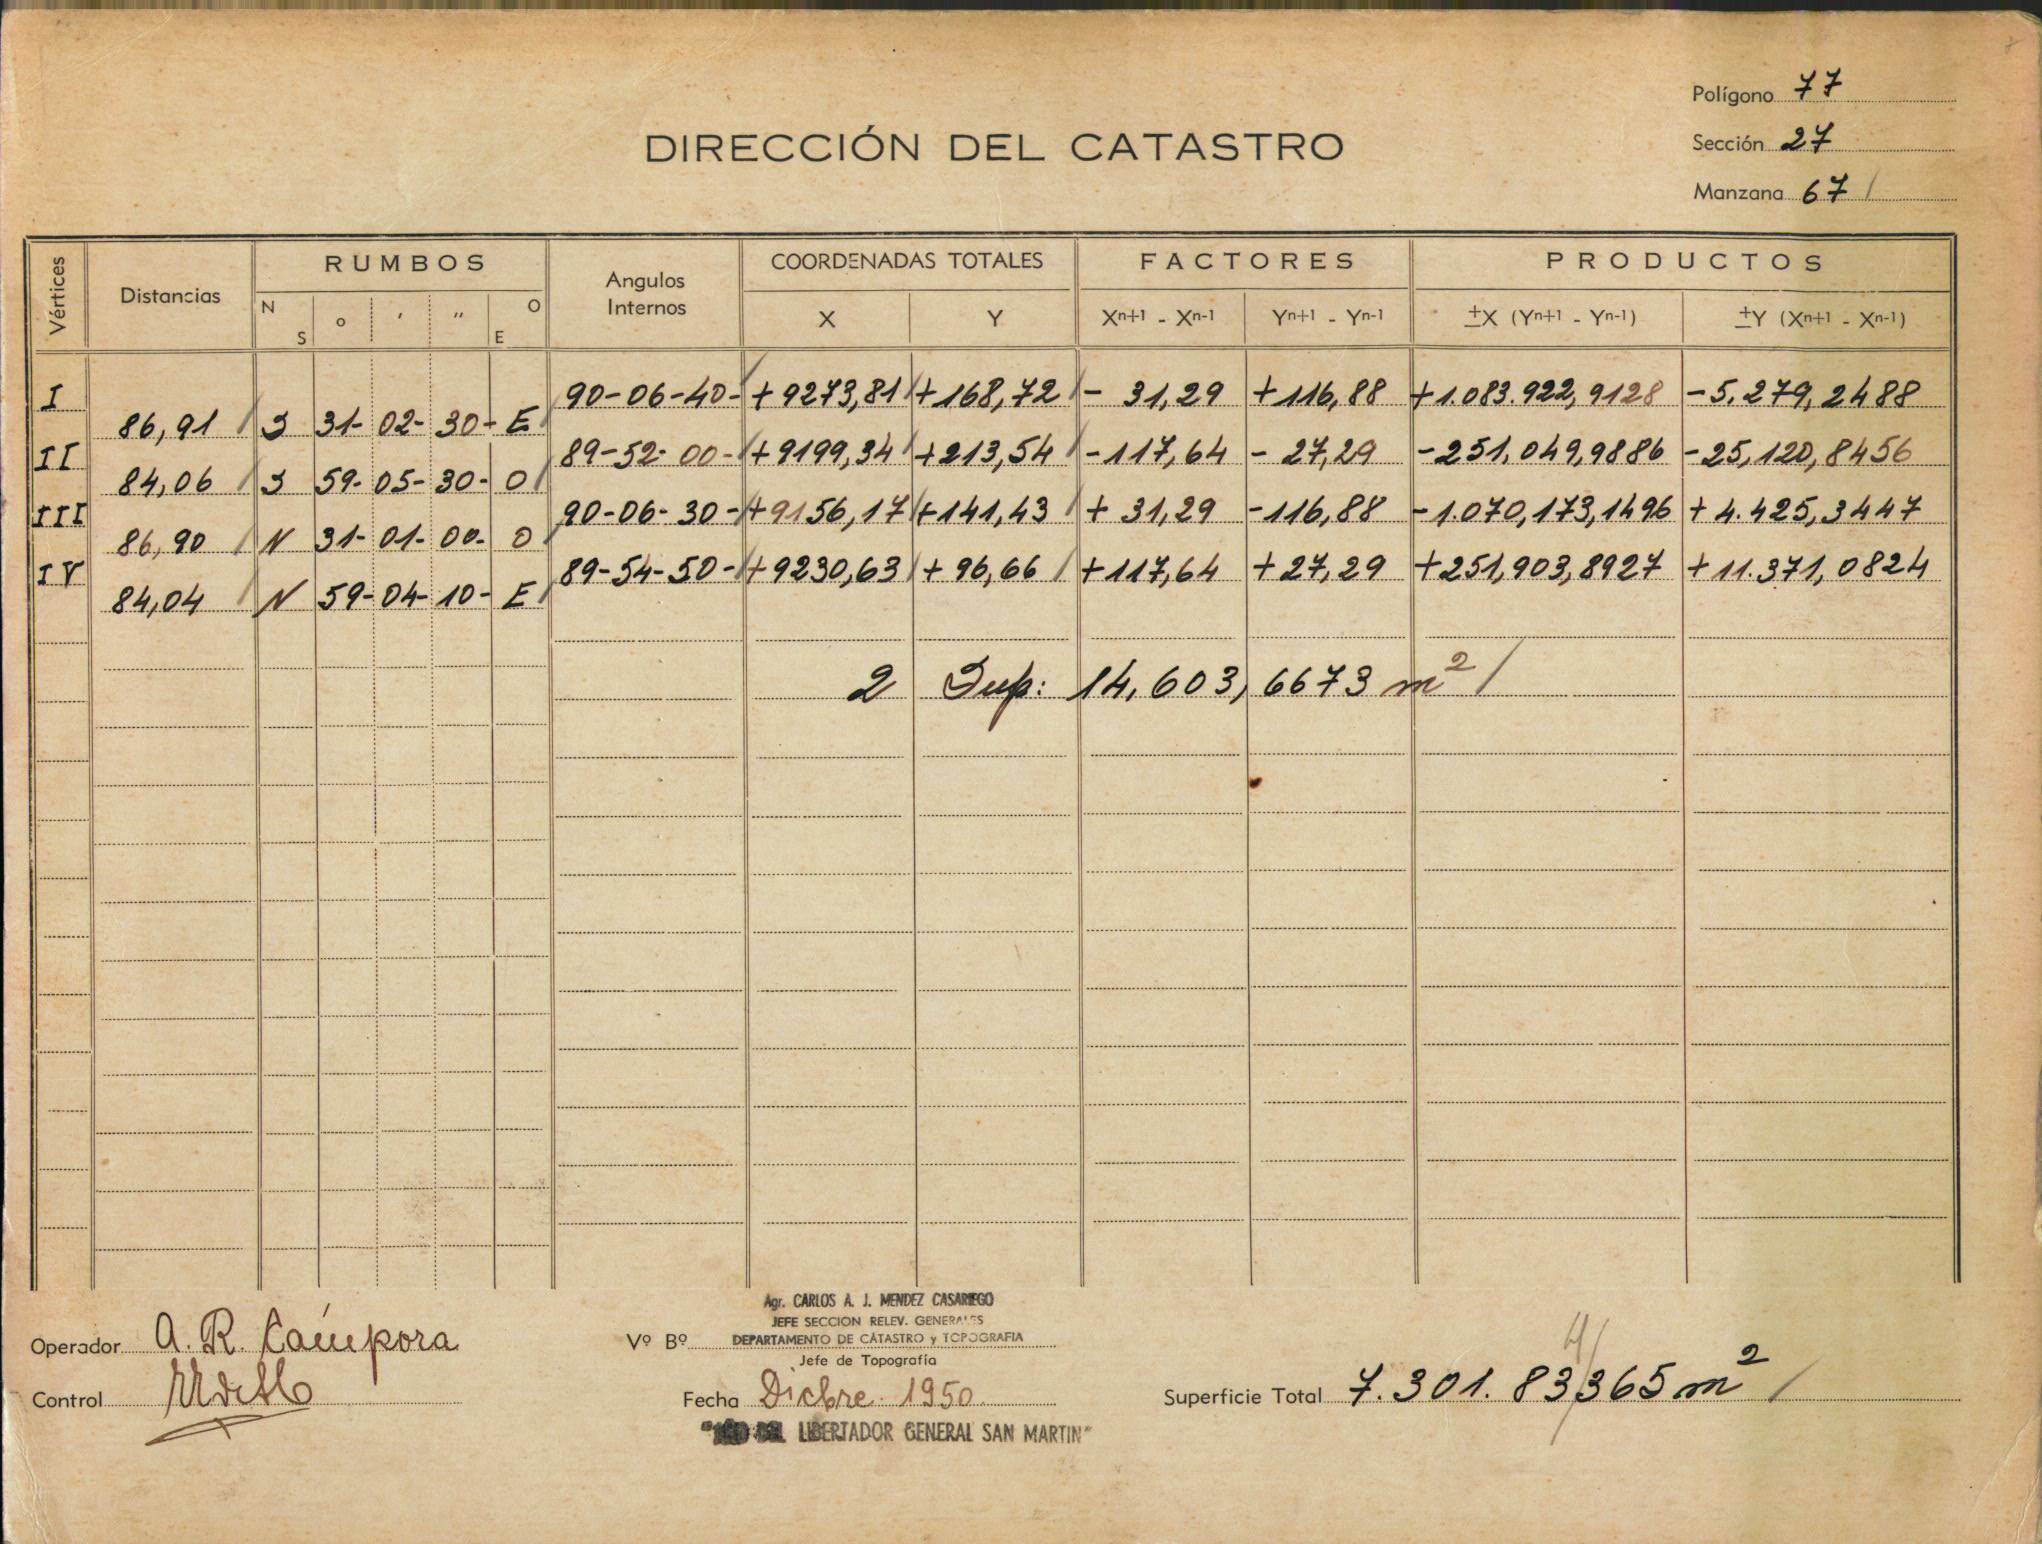 Polígono 77
DIRECCIÓN DEL CATASTRO
Sección 27
Manzana 67 /
Vértices Distancias RUMBOS Angulos Internos COORDENADAS TOTALES FACTORES PRODUCTOS
N S o ' " O E X Y Xn+1 - Xn-1 Yn+1 - Yn-1 ±X (Yn+1 - Yn-1) ±Y (Xn+1 - Xn-1)
I 90-06-40- +9273,81 / +168,72 / - 31,29 +116,88 +1.083.922,9128 -5.279,2488
86,91 / S 31- 02- 30- E /
II 89-52-00- +9199,34 / +213,54 / -117,64 - 27,29 -251.049,9886 -25,120,8456
84,06 / S 59- 05- 30- O /
III 90-06-30- +9156,17 / +141,43 / + 31,29 -116,88 -1.070,173,1496 + 4.425,3447
86,90 / N 31- 01- 00- O
IV 89-54-50- +9230,63 / + 96,66 / +117,64 +27,29 +251,903,8927 + 11.371,0824
84,04 / N 59- 04- 10- E /
2 Sup: 14,603,6673 m2 /
Agr. CARLOS A. J. MENDEZ CASARIEGO
JEFE SECCION RELEV. GENERALES
Operador A. R. Cámpora Vº Bº DEPARTAMENTO DE CATASTRO y TOPOGRAFIA
Jefe de Topografía
Control Fecha Dicbre. 1950 Superficie Total 7.301.83365 m2 /
LIBERTADOR GENERAL SAN MARTIN"